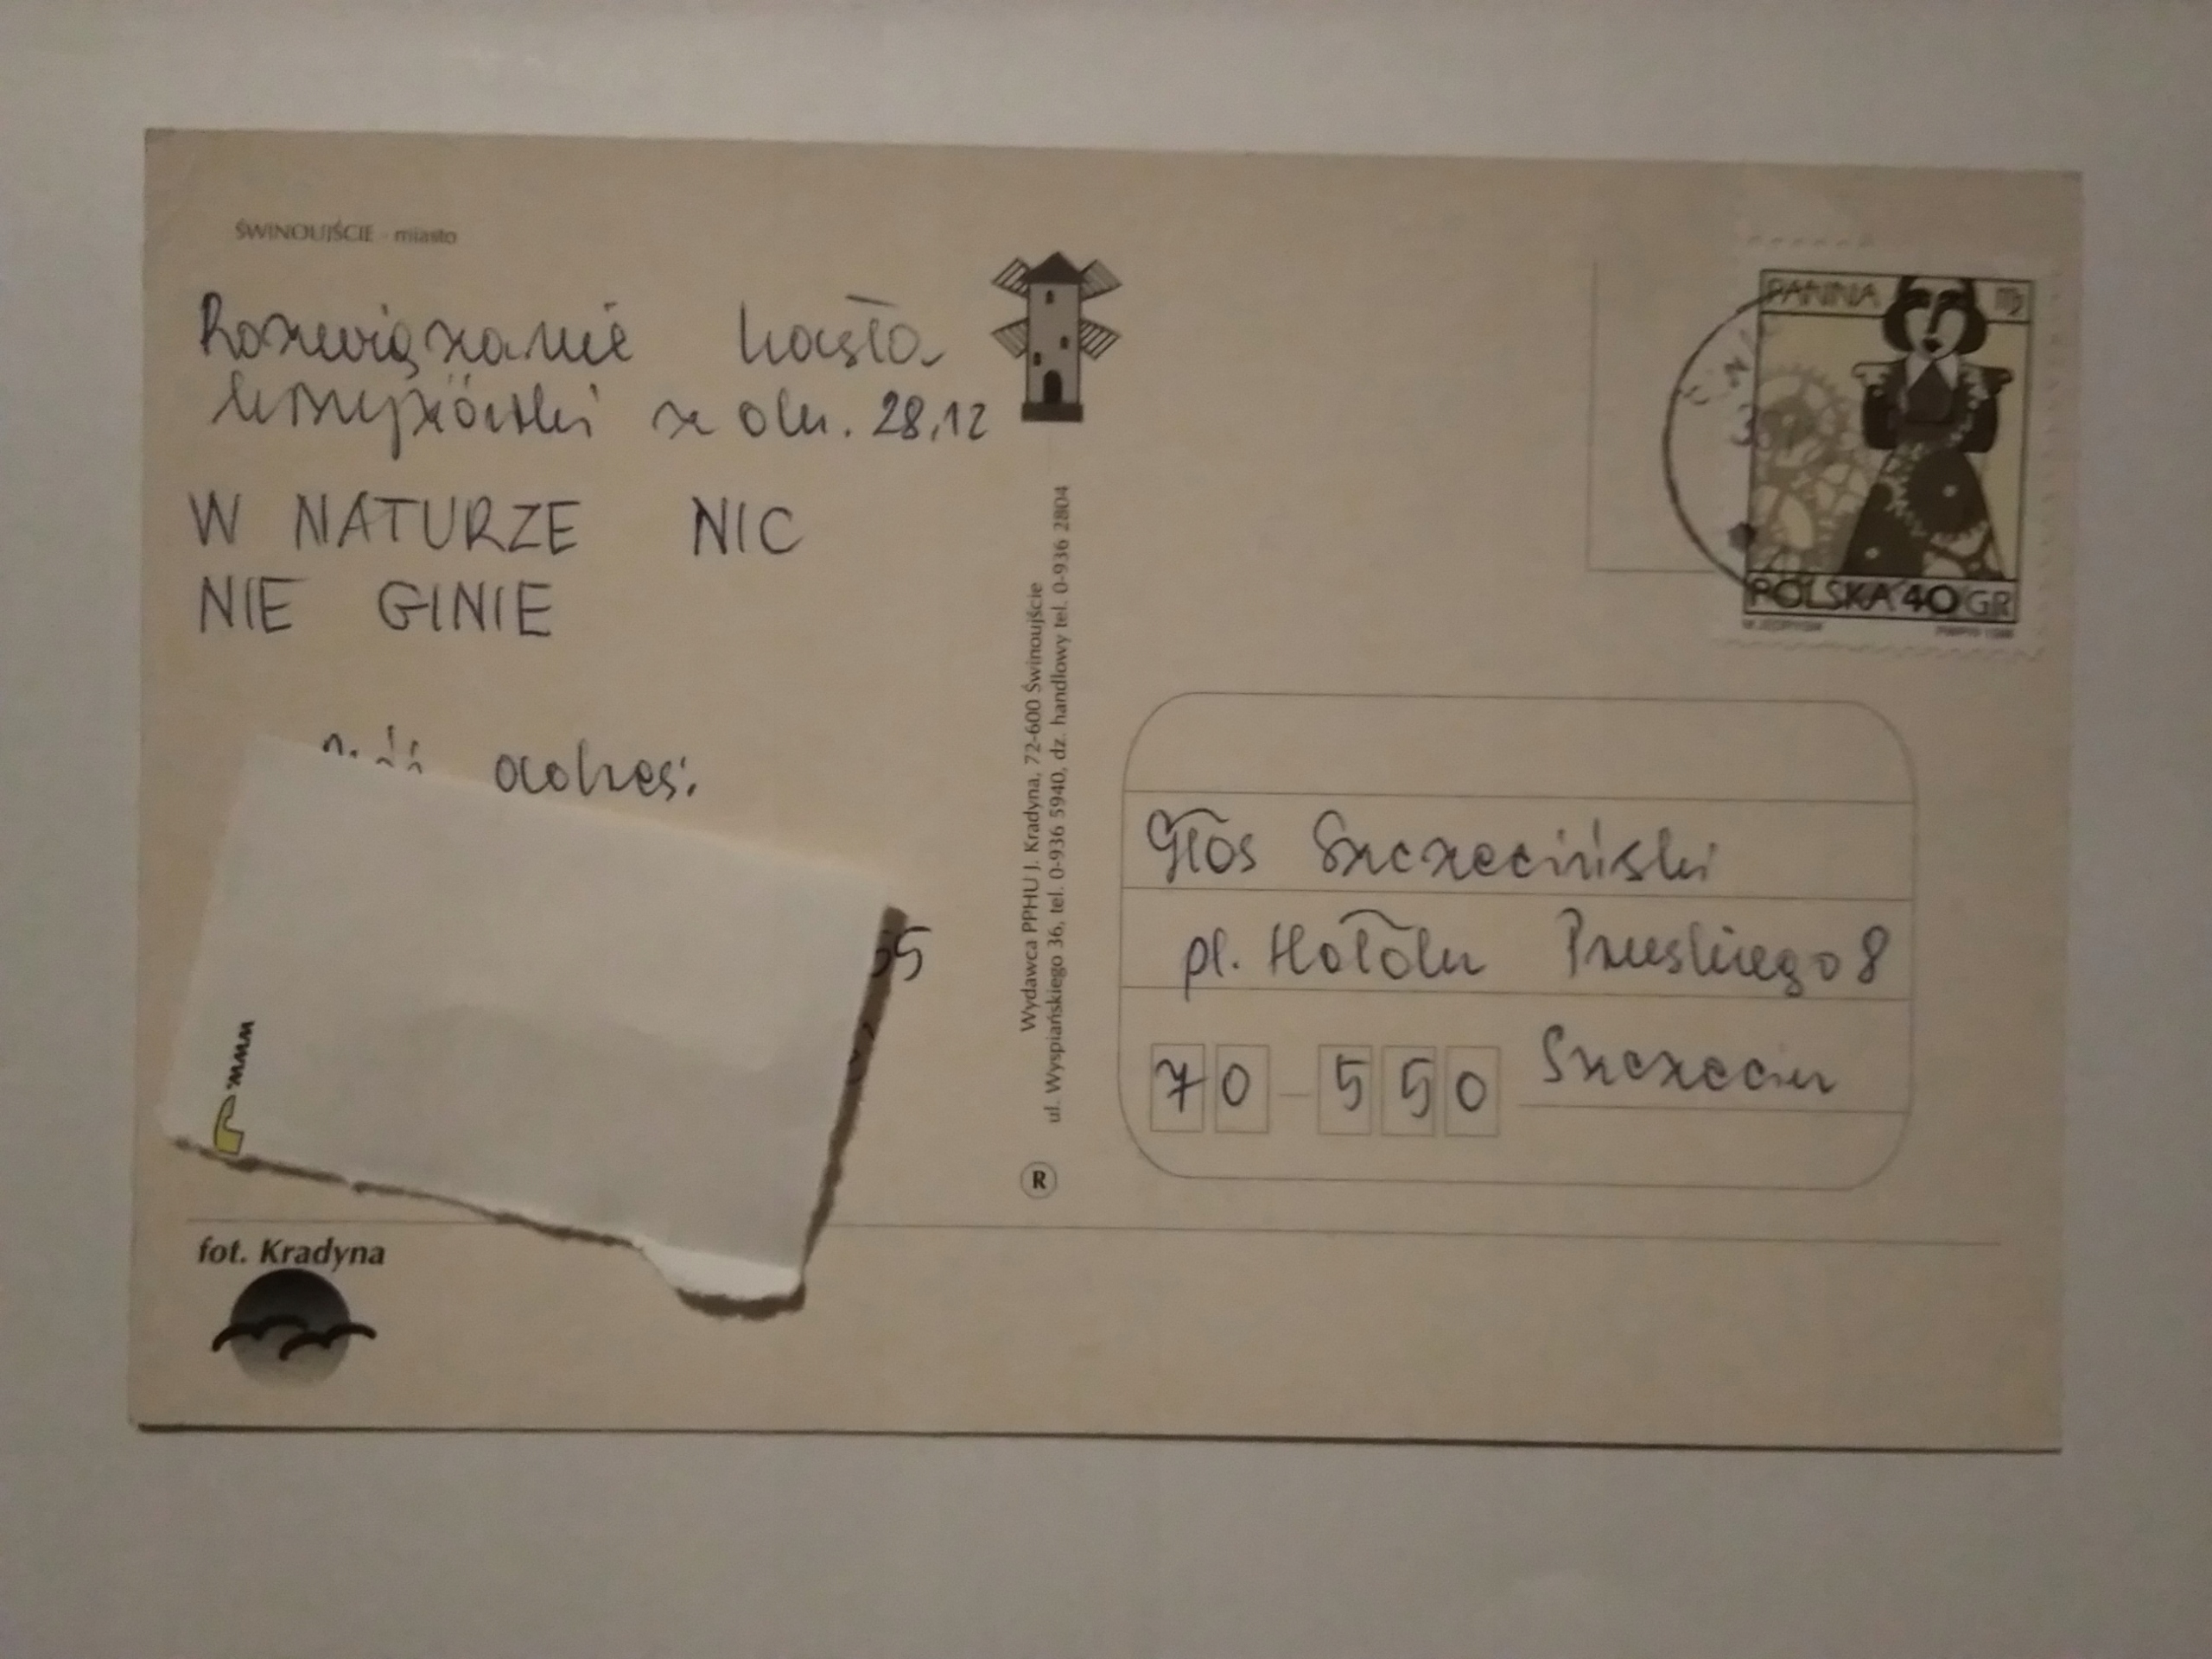 ŚWINOUJŚCIE - miasto
Rozwiązanie hasła
krzyżówki z dn. 28.12
W NATURZE NIC
NIE GINIE
adres:
55
www.
fot. Kradyna
Wydawca PPHU J. Kradyna, 72-600 Świnoujście
ul. Wyspiańskiego 36, tel. 0-936 5940, dz. handlowy tel. 0-936 2804
R
PANNA
POLSKA 40 GR
Głos Szczeciński
pl. Hołdu Pruskiego 8
70-550 Szczecin